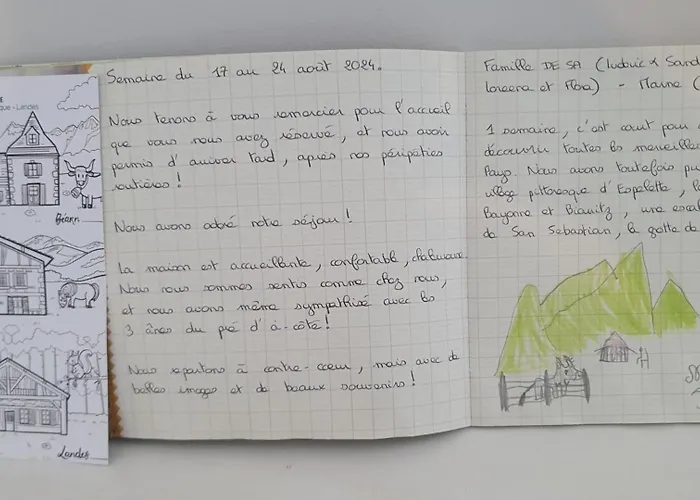 que - Landes
Béarn
Landes
Semaine du 17 au 24 août 2024.
Nous tenons à vous remercier pour l'accueil
que vous nous avez réservé, et nous avoir
permis d'arriver tard, après nos péripéties
routières !
Nous avons adoré notre séjour !
La maison est accueillante, confortable, chaleureuse.
Nous nous sommes sentis comme chez nous,
et nous avons même sympathisé avec les
3 ânes du pré d'à-côté !
Nous repartons à contre-cœur, mais avec de
belles images et de beaux souvenirs !
Famille DE SA (ludovic & Sand
et Flora) - Marne (
1 semaine, c'est court pour
découvrir toutes les merveilles
Pays. Nous avons toutefois pu
village pittoresque d'Espelette, l
Bayonne et Biarritz, une escal
de San Sebastian, la grotte de